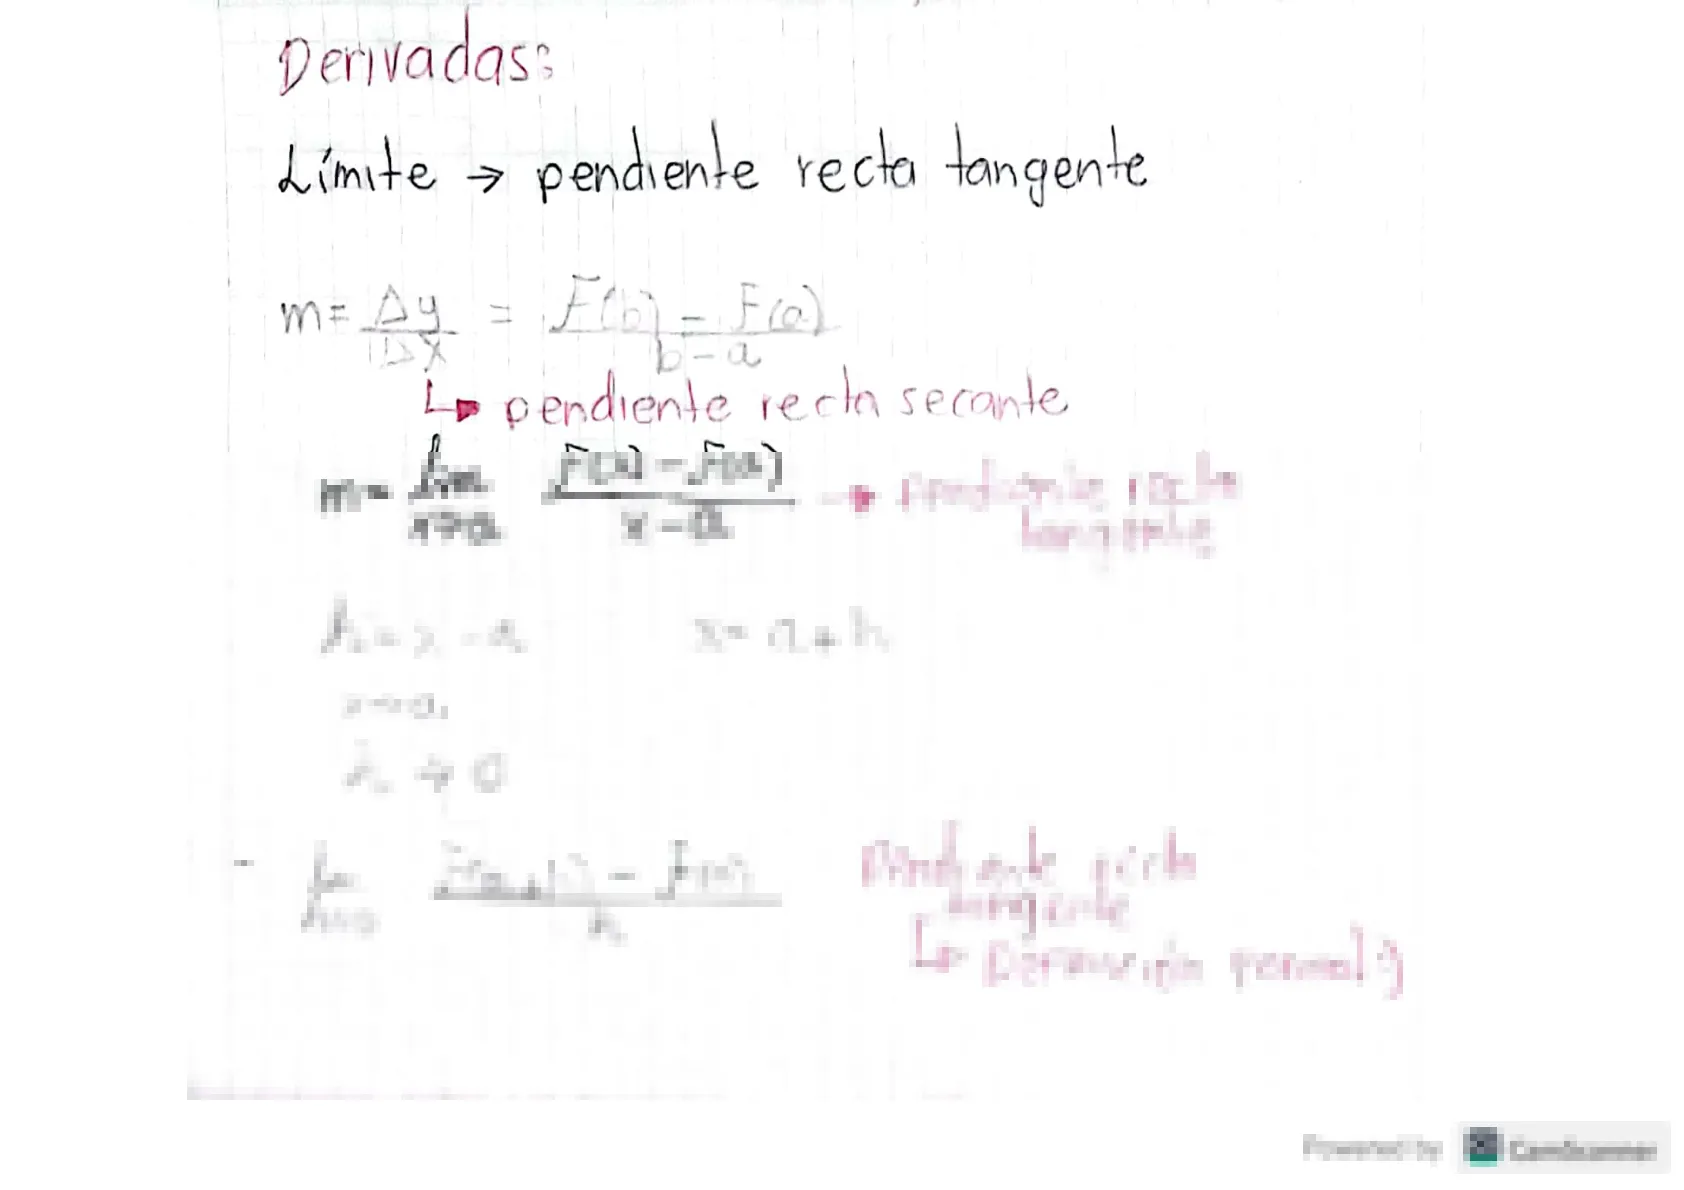 Derivadas:
Límite → pendiente recta tangente
m = Δy / Δx = F(b) - F(a) / b - a
↳ pendiente recta secante
m = lim x→a F(x) - F(a) / x - a → pendiente recta
tangente
h = x - a x = a + h
x → a
h → 0
lim h→0 F(a+h) - F(a) / h
pendiente recta
tangente
Powered by CamScanner